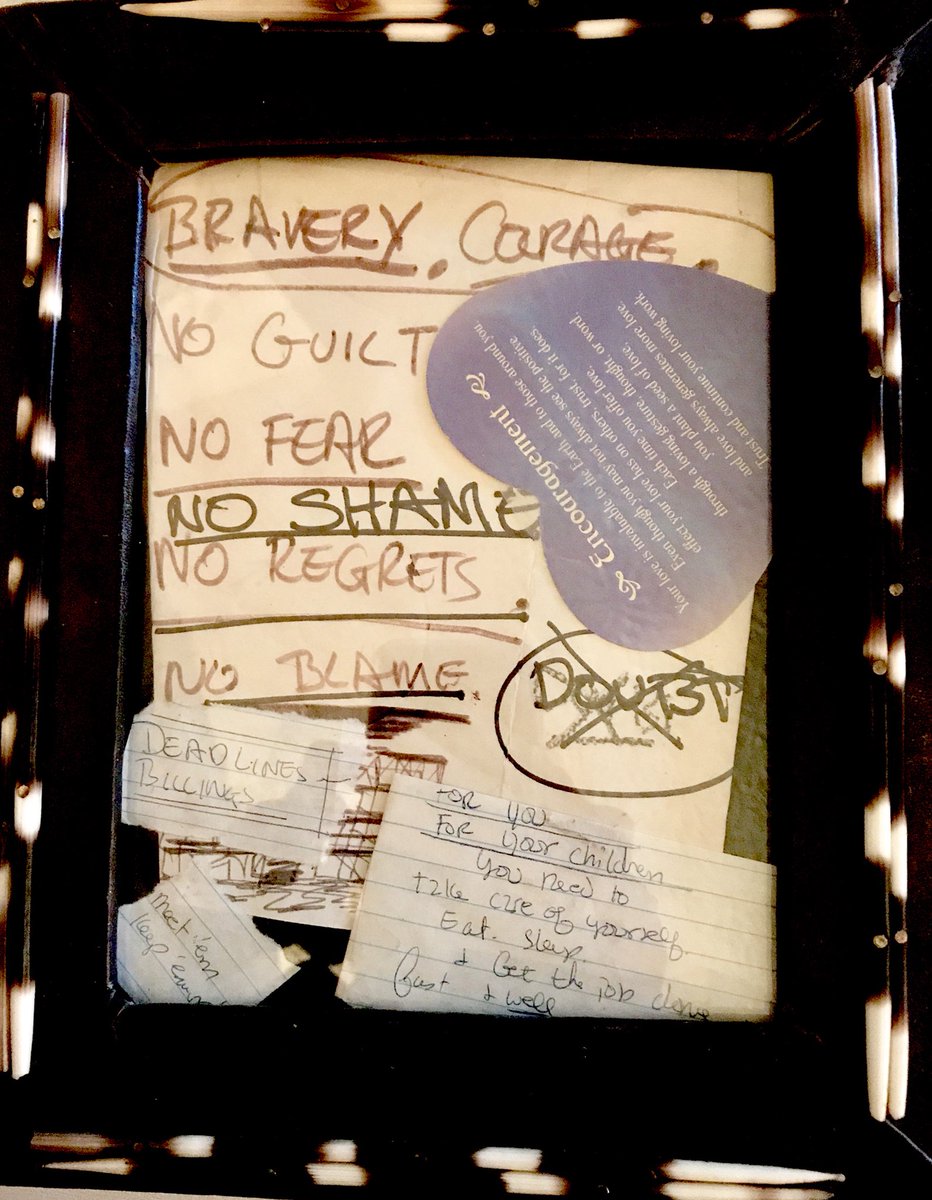 BRAVERY. COURAGE.
NO GUILT
NO FEAR
NO SHAME
NO REGRETS.
NO BLAME.
Encouragement
Your love is invaluable to the Earth and to those around you.
Even though you may not always see the positive
effect your love has on others, trust, for it does.
Each time you offer love,
through a loving gesture, thought, or word
you plant a seed of love,
and love always generates more love.
Trust and continue your loving work.
DOUBT
DEADLINES +
BILLINGS
meet 'em
keep 'em
FOR YOU
FOR your children
you need to
take care of yourself.
Eat. Sleep.
& Get the job done
fast & well